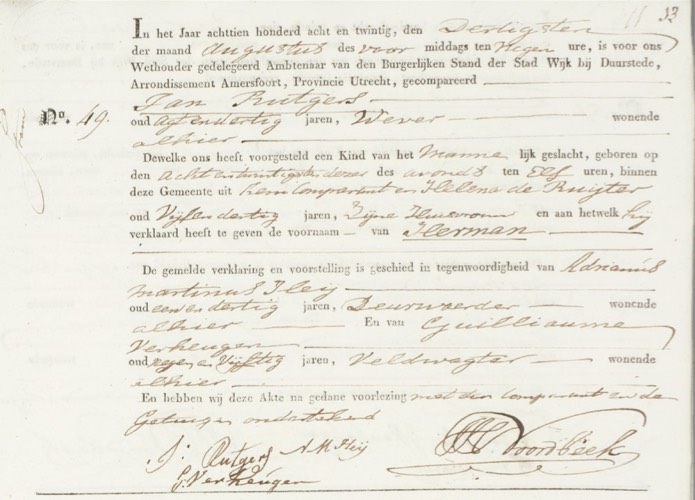 33
In het Jaar achttien honderd acht en twintig, den Dertigsten
der maand Augustus des voor middags ten Negen ure, is voor ons
Wethouder gedelegeerd Ambtenaar van den Burgerlijken Stand der Stad Wijk bij Duurstede,
Arrondissement Amersfoort, Provincie Utrecht, gecompareerd
Jan Rutgers
No. 49.
oud agt en dertig jaren, Wever wonende
alhier
Dewelke ons heeft voorgesteld een Kind van het Manne lijk geslacht, geboren op
den achtentwintigsten dezer des avonds ten Elf uren, binnen
deze Gemeente uit hem Comparant en Helena de Ruijter
oud Vijf en dertig jaren, Zijne Huisvrouw en aan hetwelk hij
verklaard heeft te geven de voornaam van Herman
De gemelde verklaring en voorstelling is geschied in tegenwoordigheid van Adrianus
Martinus Heij
oud een en dertig jaren, Deurwaerder wonende
alhier En van Guilliaume
Verheugen
oud negen en Vijftig jaren, Veldwagter wonende
alhier
En hebben wij deze Akte na gedane voorlezing met den Comparant en de
Getuigen onderteekend
J: Rutgers A M Heij
G. Verheugen
Voordbeek